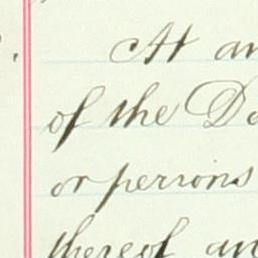 At an
of the Do
or persons
thereof an